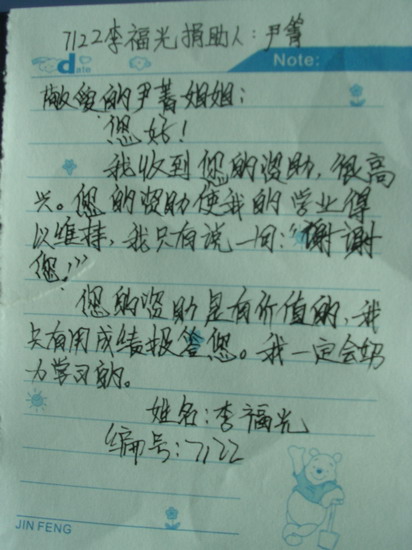 7122李福光捐助人：尹菁
date
Note:
敬爱的尹菁姐姐：
您好！
我收到您的资助，很高
兴。您的资助使我的学业得
以维持，我只有说一句：“谢谢
您！”
您的资助是有价值的，我
只有用成绩报答您。我一定会努
力学习的。
姓名：李福光
编号：7122
JIN FENG